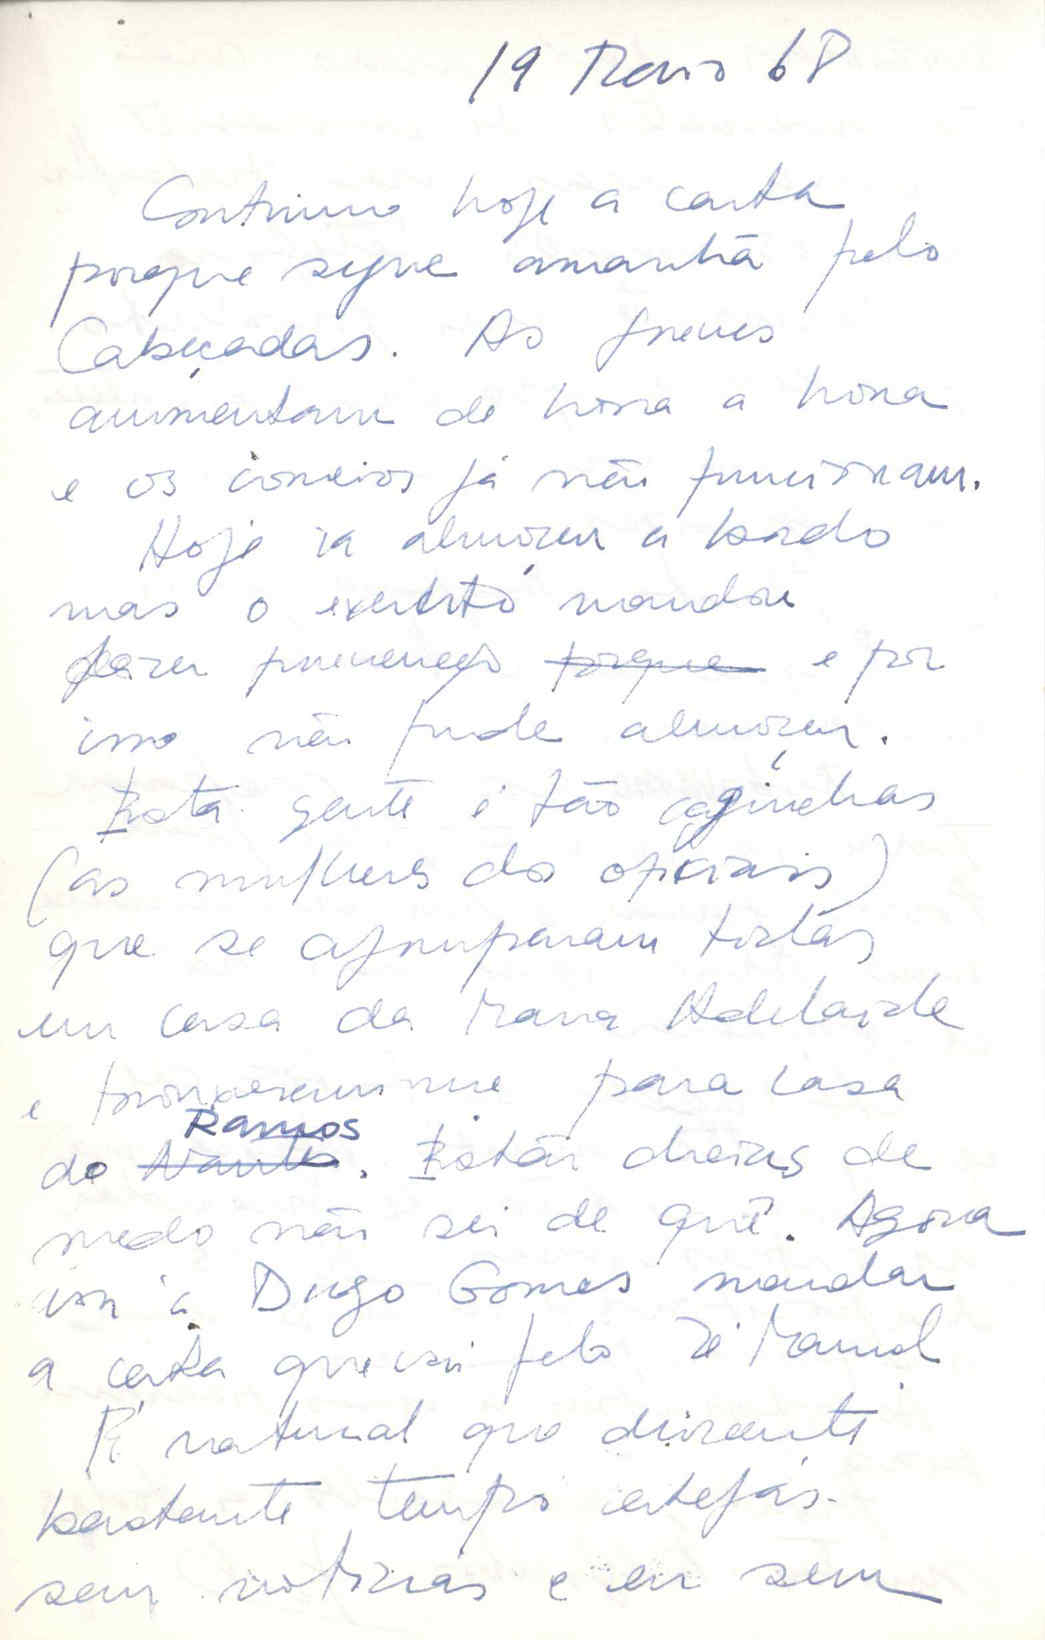 19 Maio 68
Continuo hoje a carta
porque segue amanhã pelo
Cabeçadas. As greves
aumentam de hora a hora
e os correios já não funcionam.
Hoje ia almoçar a bordo
mas o exercito mandou
fazer prevenção porque e por
isso não pude almoçar.
Esta gente é tão caguinchas
(as mulheres dos oficiais)
que se agruparam todas
em casa da Maria Adelaide
e trouxeram me para casa
do Ramos. Estão cheias de
medo não sei de quê. Agora
vou à Diogo Gomes mandar
a carta que vai pelo Zé Manel
É natural que durante
bastante tempo estejas
sem noticias e eu sem